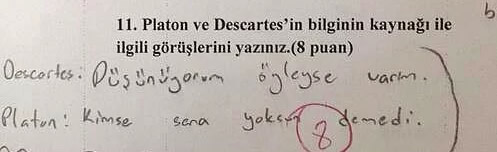 b
11. Platon ve Descartes'in bilginin kaynağı ile
ilgili görüşlerini yazınız.(8 puan)
Descartes: Düşünüyorum öyleyse varım.
Platon: Kimse sana yoksun demedi.
8